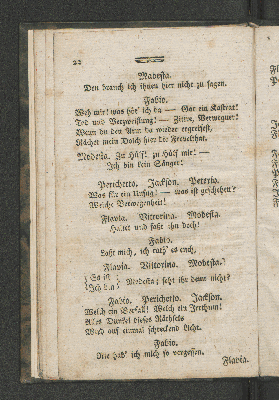 22
Modesta.
Den brauch ich ihnen hier nicht zu sagen.
Fabio.
Weh mir! was hör' ich da — Gar ein Kastrat!
Tod und Verzweiflung! — Zittre, Verwegner!
Wenn du den Arm da wieder ergreifest,
Rächet mein Dolch hier die Frevelthat.
Modesta. Zu Hülf! zu Hülf mir! —
Ich bin kein Sänger!
Perichetto. Jackson. Petrio.
Was für ein Unfug! — was ist geschehen?
Welche Verwegenheit!
Flavia. Vittorina. Modesta.
Haltet und faßt ihn doch!
Fabio.
Laßt mich, ich rath' es euch,
Flavia. Vittorina. Modesta.
Es ist
Ich bin
Modesta; seht ihr denn nicht?
Fabio. Perichetto. Jackson.
Welch ein Vorfall! Welch ein Irrthum!
Alles Dunkel dieses Räthsels
Wird auf einmal schreckend Licht.
Fabio.
Wie hab' ich mich so vergessen.
Flavia.